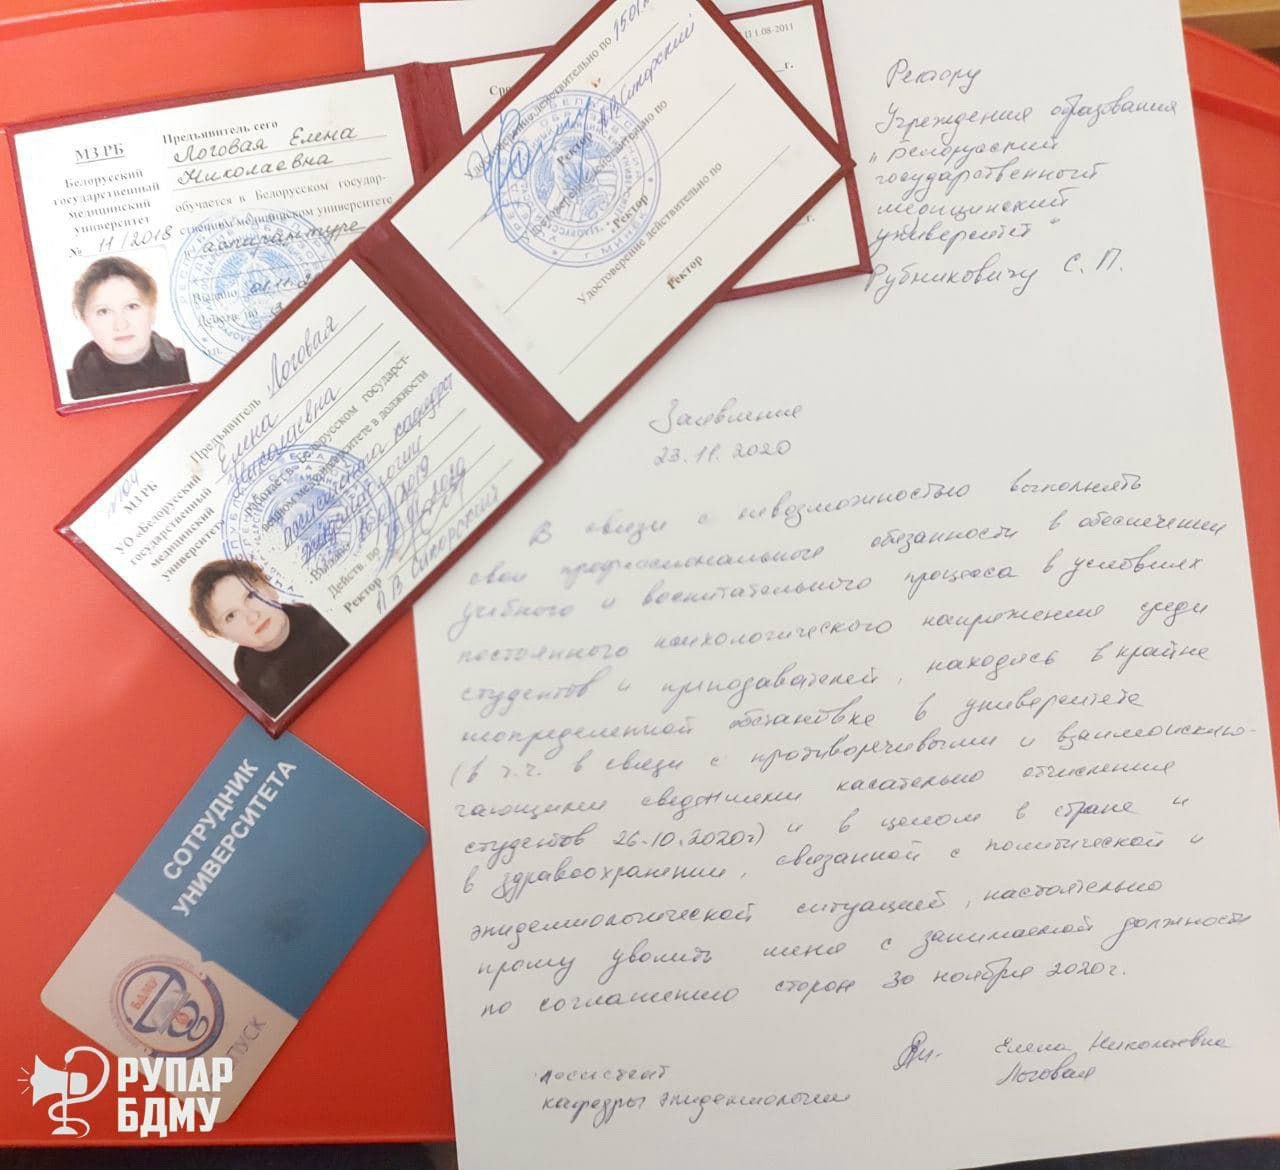 МЗ РБ
Белорусский
государственный
медицинский
университет
№ 11/2018
Предъявитель сего
Логовая Елена
Николаевна
обучается в Белорусском государ-
ственном медицинском университете
в аспирантуре
Выдано 01.11.
Действ. по
П 1.08-2011
Удостоверение действительно по
Ректор А.В. Сикорский
Удостоверение действительно по
Ректор
Удостоверение действительно по
Ректор
МЗ РБ
УО «Белорусский
государственный
медицинский
университет»
Предъявитель Логовая
Елена
Николаевна
работает в Белорусском государст-
венном медуниверситете в должности
ассистента кафедры
эпидемиологии
Выдано
Действ. по
Ректор
А.В. Сикорский
СОТРУДНИК
УНИВЕРСИТЕТА
БДМУ
Ректору
Учреждения образования
„Белорусский
государственный
медицинский
университет“
Рубниковичу С. П.
Заявление
23.11.2020
В связи с невозможностью выполнять
свои профессиональные обязанности в обеспечении
учебного и воспитательного процесса в условиях
постоянного психологического напряжения среди
студентов и преподавателей, находясь в крайне
неопределенной обстановке в университете
(в т.ч. в связи с противоречивыми и взаимоисклю-
чающими сведениями касательно отчисления
студентов 26.10.2020г) и в целом в стране и
в здравоохранении, связанной с политической и
эпидемиологической ситуацией, настоятельно
прошу уволить меня с занимаемой должности
по соглашению сторон 30 ноября 2020г.
Ассистент
кафедры эпидемиологии
Елена Николаевна
Логовая
РУПАР
БДМУ